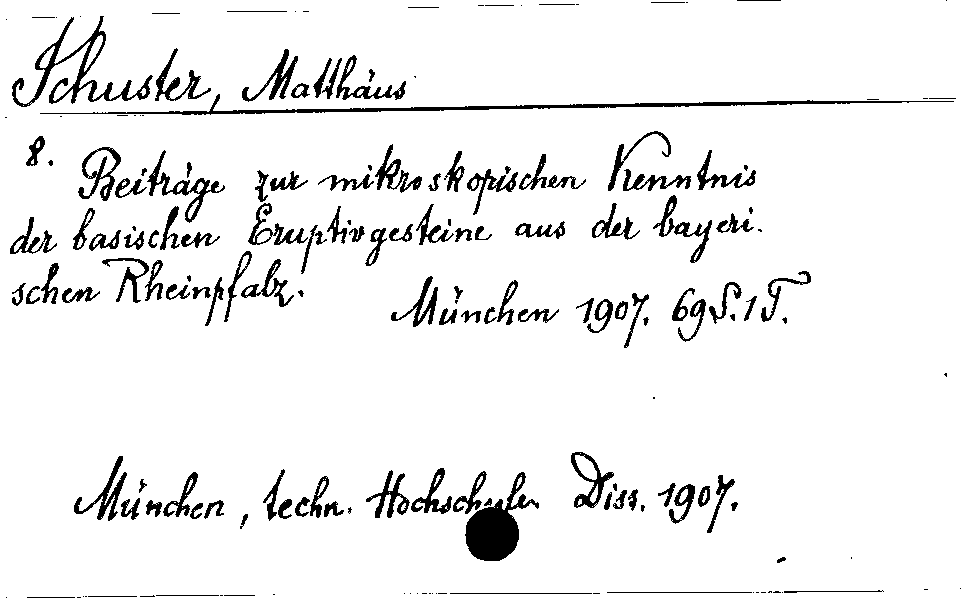 Schuster, Matthäus
8.
Beiträge zur mikroskopischen Kenntnis
der basischen Eruptivgesteine aus der bayeri-
schen Rheinpfalz.
München 1907. 69 S. 1 T.
München, techn. Hochschule, Diss. 1907.